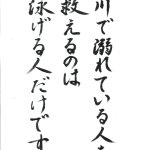 川で溺れている人を
救えるのは
泳げる人だけです